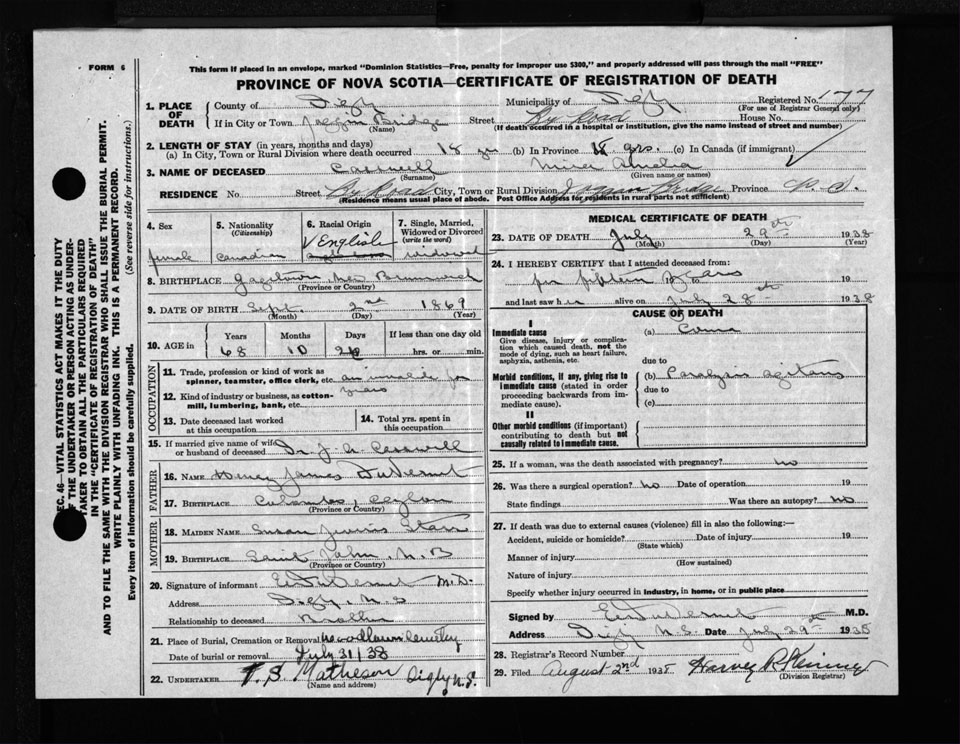 FORM 6
This form if placed in an envelope, marked "Dominion Statistics—Free, penalty for improper use $300," and properly addressed will pass through the mail "FREE"
PROVINCE OF NOVA SCOTIA—CERTIFICATE OF REGISTRATION OF DEATH
1. PLACE OF DEATH County of Digby Municipality of Digby Registered No. 177
(For use of Registrar General only)
If in City or Town Joggin Bridge Street By Road House No.
(Name) (If death occurred in a hospital or institution, give the name instead of street and number)
2. LENGTH OF STAY (in years, months and days)
(a) In City, Town or Rural Division where death occurred 18 yrs (b) In Province 18 yrs. (c) In Canada (if immigrant)
3. NAME OF DECEASED Amelia
(Surname) (Given name or names)
RESIDENCE No. Street By Road City, Town or Rural Division Joggin Bridge Province N. S.
(Residence means usual place of abode. Post Office Address for residents in rural parts not sufficient)
4. Sex 5. Nationality 6. Racial Origin 7. Single, Married, Widowed or Divorced
(Citizenship) (write the word)
female Canadian English widowed
8. BIRTHPLACE Gagetown New Brunswick
(Province or Country)
9. DATE OF BIRTH Sept. 2nd 1869
(Month) (Day) (Year)
10. AGE in Years Months Days If less than one day old
68 10 26 hrs. or min.
OCCUPATION
11. Trade, profession or kind of work as spinner, teamster, office clerk, etc. an invalid for
12. Kind of industry or business, as cotton-mill, lumbering, bank, etc. years
13. Date deceased last worked at this occupation
14. Total yrs. spent in this occupation
15. If married give name of wife or husband of deceased Dr. J. A.
FATHER
16. NAME Henry James DuVernet
17. BIRTHPLACE Columbo, Ceylon
(Province or Country)
MOTHER
18. MAIDEN NAME Susan Starr
19. BIRTHPLACE Saint John, N.B
(Province or Country)
20. Signature of informant E DuVernet M.D.
Address Digby, N.S
Relationship to deceased Brother
21. Place of Burial, Cremation or Removal Woodlawn Cemetery
Date of burial or removal July 31/38
22. UNDERTAKER F. S. Matheson Digby N.S.
(Name and address)
MEDICAL CERTIFICATE OF DEATH
23. DATE OF DEATH July 29th 1938
(Month) (Day) (Year)
24. I HEREBY CERTIFY that I attended deceased from:
for fifteen years 19
and last saw her alive on July 28th 1938
CAUSE OF DEATH
I
Immediate cause (a) Coma
Give disease, injury or complication which caused death, not the mode of dying, such as heart failure, asphyxia, asthenia, etc.
due to
Morbid conditions, if any, giving rise to immediate cause (stated in order proceeding backwards from immediate cause).
(b) Paralysis agitans
due to
(c)
II
Other morbid conditions (if important) contributing to death but not causally related to immediate cause.
25. If a woman, was the death associated with pregnancy? no
26. Was there a surgical operation? no Date of operation 19
State findings Was there an autopsy? no
27. If death was due to external causes (violence) fill in also the following:—
Accident, suicide or homicide? Date of injury 19
(State which)
Manner of injury
(How sustained)
Nature of injury
Specify whether injury occurred in industry, in home, or in public place
Signed by E DuVernet M.D.
Address Digby N.S. Date July 29th 1938
28. Registrar's Record Number
29. Filed August 2nd 1938 Harvey
(Division Registrar)
SEC. 46—VITAL STATISTICS ACT MAKES IT THE DUTY
OF THE UNDERTAKER OR PERSON ACTING AS UNDER-
TAKER TO OBTAIN ALL THE PARTICULARS REQUIRED
IN THE "CERTIFICATE OF REGISTRATION OF DEATH"
AND TO FILE THE SAME WITH THE DIVISION REGISTRAR WHO SHALL ISSUE THE BURIAL PERMIT.
WRITE PLAINLY WITH UNFADING INK. THIS IS A PERMANENT RECORD.
Every item of information should be carefully supplied. (See reverse side for instructions.)